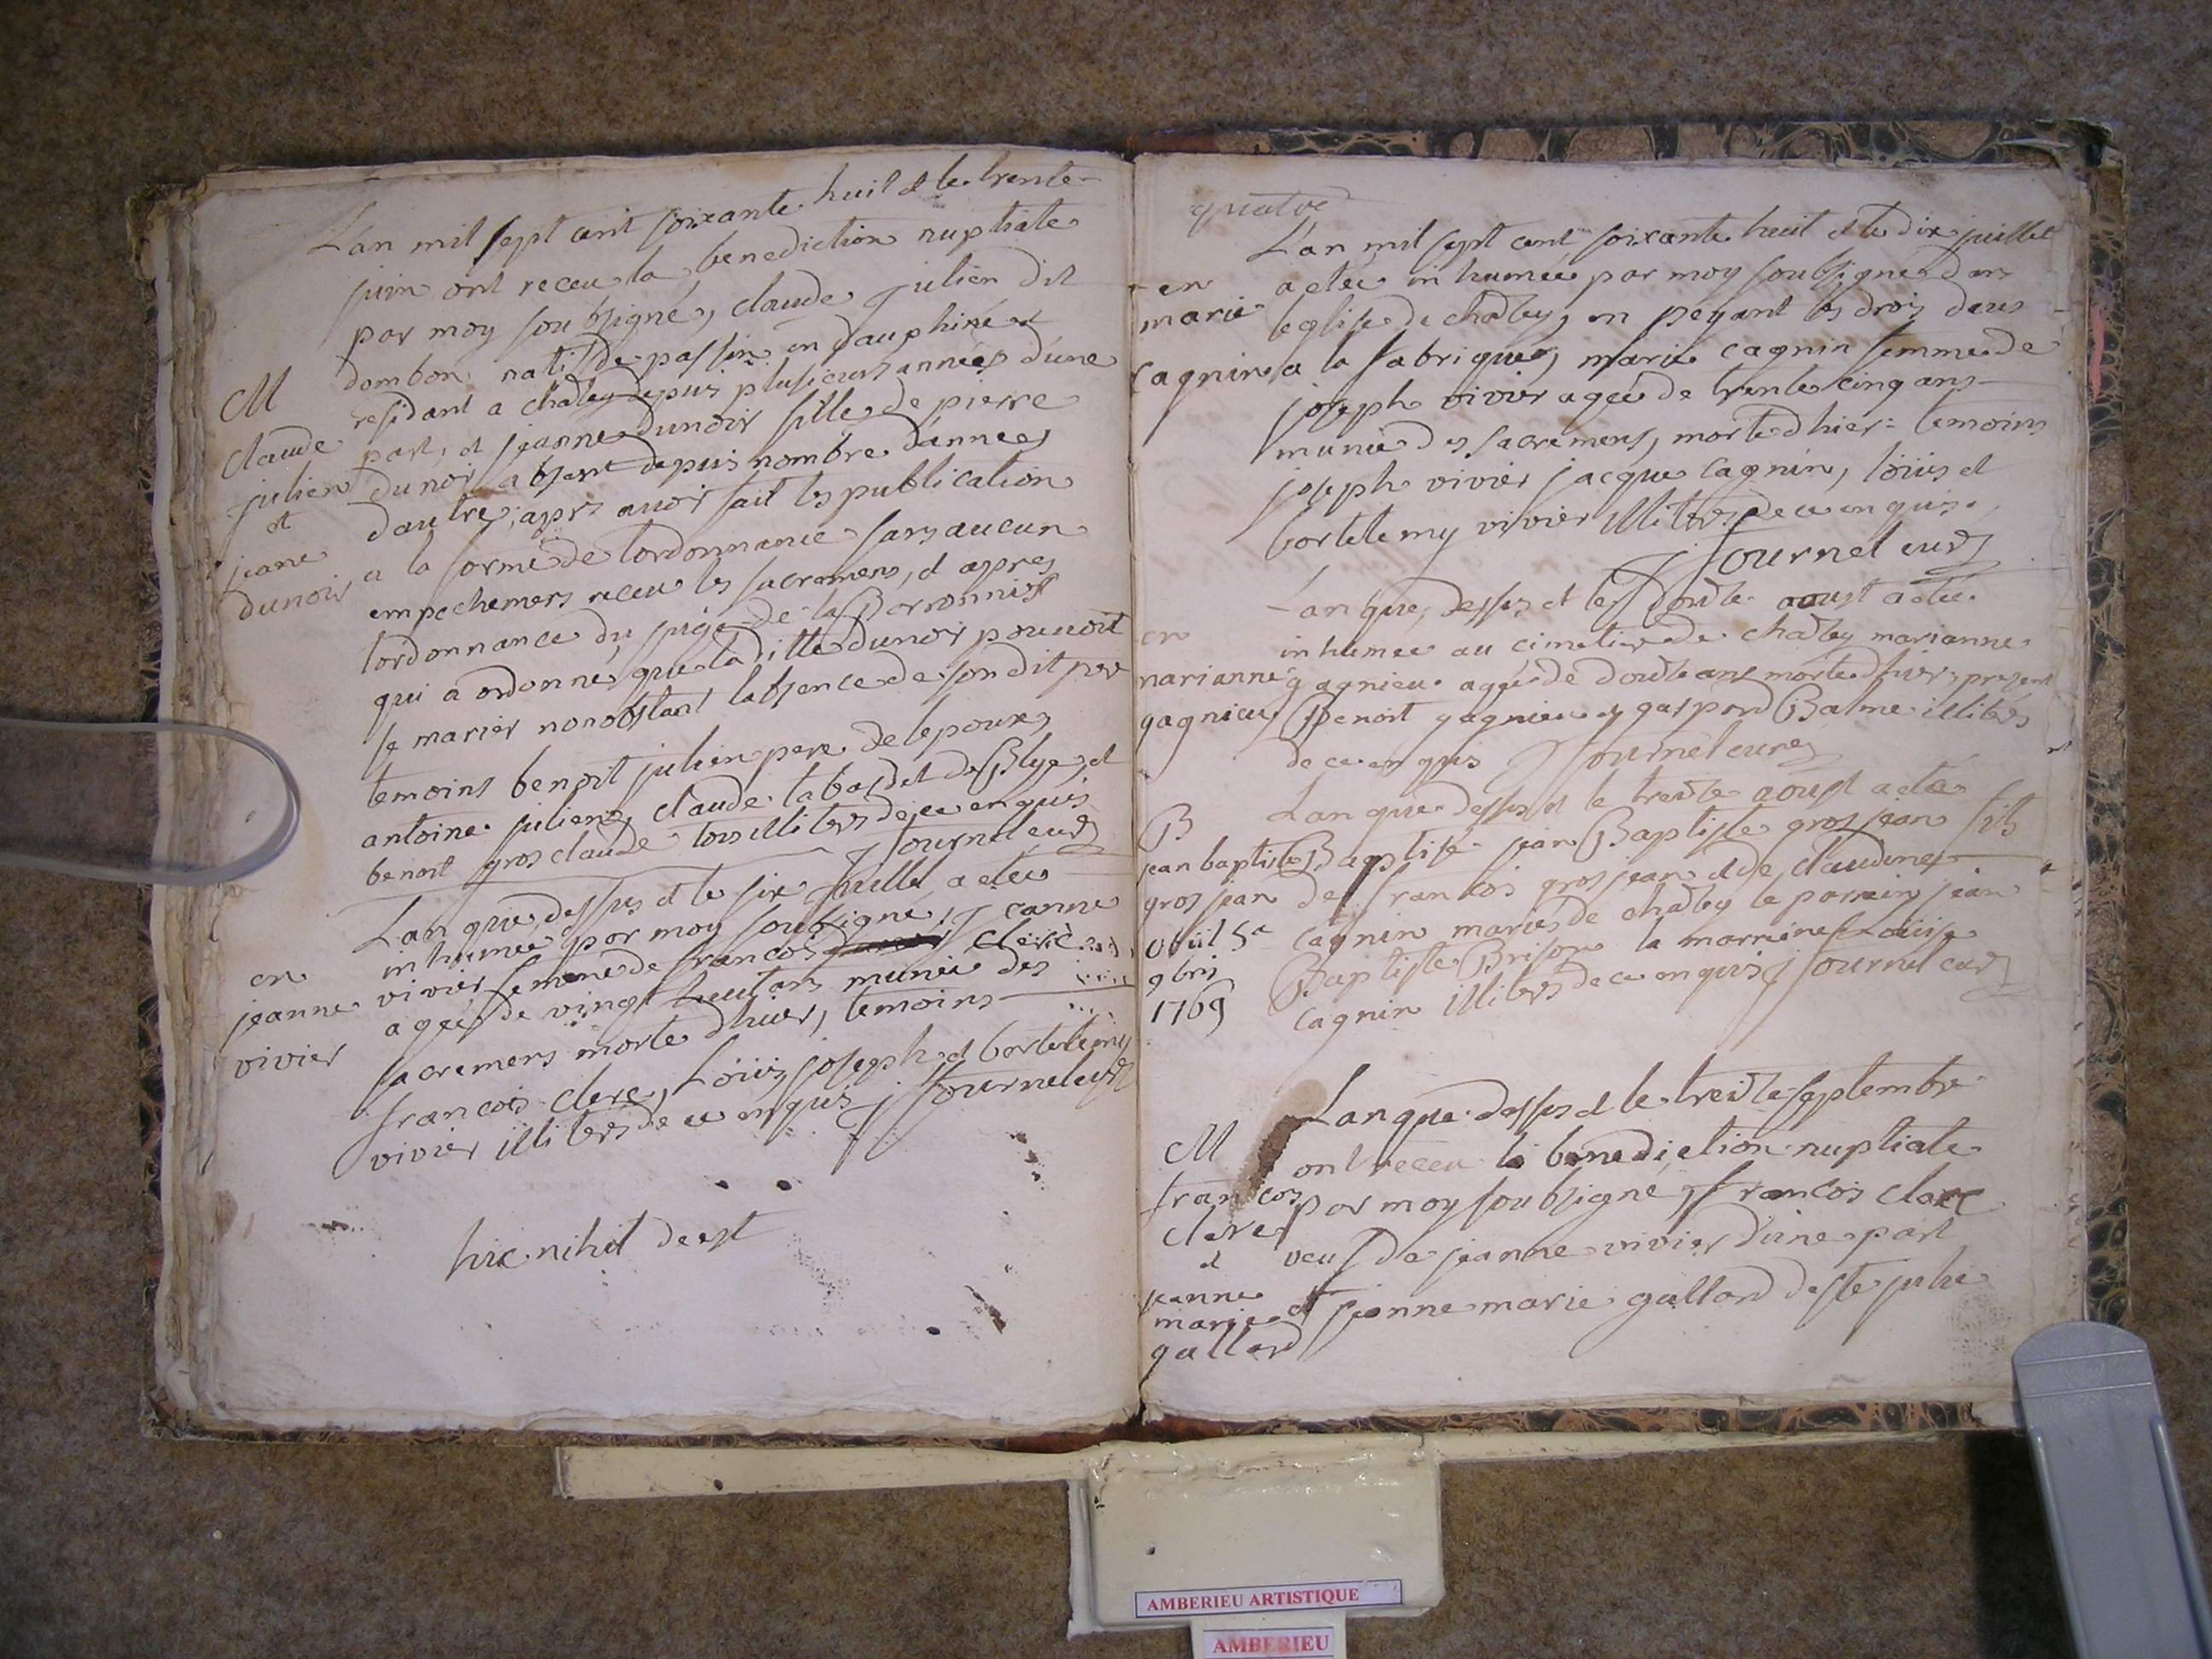 L'an mil sept cent soixante huit et le trente
juin ont receu la benediction nuptiale
par moy soubsigné, claude julien dit
dombon natif de passin en dauphiné et
M
residant a chaley depuis plusieurs années d'une
claude part, et jeanne dunoir fille de pierre
julien dunoir absent depuis nombre d'années
et d'autre, apres avoir fait les publication
jeane a la forme de l'ordonnance sans aucun
dunoir empechemens receu les sacremens, et apres
l'ordonnance du juge de la Baronnis
qui a ordonné que la ditte dunoir pouvoit
se marier nonobstant l'absence de son dit pere
temoins benoit julien pere de lepoux,
antoine julien, claude labadet de Blye, et
benoit gros claude tous illiterés de ce enquis
J Fournel curé
L'an que dessus et le six juillet a etée
inhumée par moy soubsigné, Jeanne
en vivier femme de francois clerc
jeanne agée de vingt huit ans munie des
vivier sacremens morte d'hier, temoins
francois clerc, Loüis, joseph et bartelemy
vivier illiterés de ce enquis J fournel curé
hic nihil deest
quatre
L'an mil sept cent soixante huit et le dix juillet
en a etée inhumée par moy soubsigné dans
marie l'eglise de chaley, en peyant les drois deus
cagnin a la fabrique, marie cagnin femme de
joseph vivier agée de trente cinq ans
munie des sacremens, morte d'hier temoins
joseph vivier jacque cagnin, loüis et
bartelemy vivier illiterés de ce enquis.
J fournel curé
L'an que dessus et le douze aoust a etée
en inhumée au cimetiere de chaley marianne
marianne gagnieu agée de douze ans morte d'hier, present
gagnieu Benoit gagnieu et gaspard Balme illiterés
de ce enquis J fournel curé
L'an que dessus et le treize aoust a etée
B
jean baptiste Baptisé jean Baptiste gros jean fils
gros jean de francois gros jean et de claudine
obiit 5a cagnin mariés de chaley le parrain jean
9bris Baptiste Brison la marraine Loüise
1769 cagnin illiterés de ce enquis J fournel curé
L'an que dessus et le treize septembre
M ont receu la benediction nuptiale
francois par moy soubsigné, francois clerc
clerc veuf de jeanne vivier d'une part
et
jeanne et jeanne marie gallard de ste julie
marie
gallard
AMBERIEU ARTISTIQUE
AMBERIEU